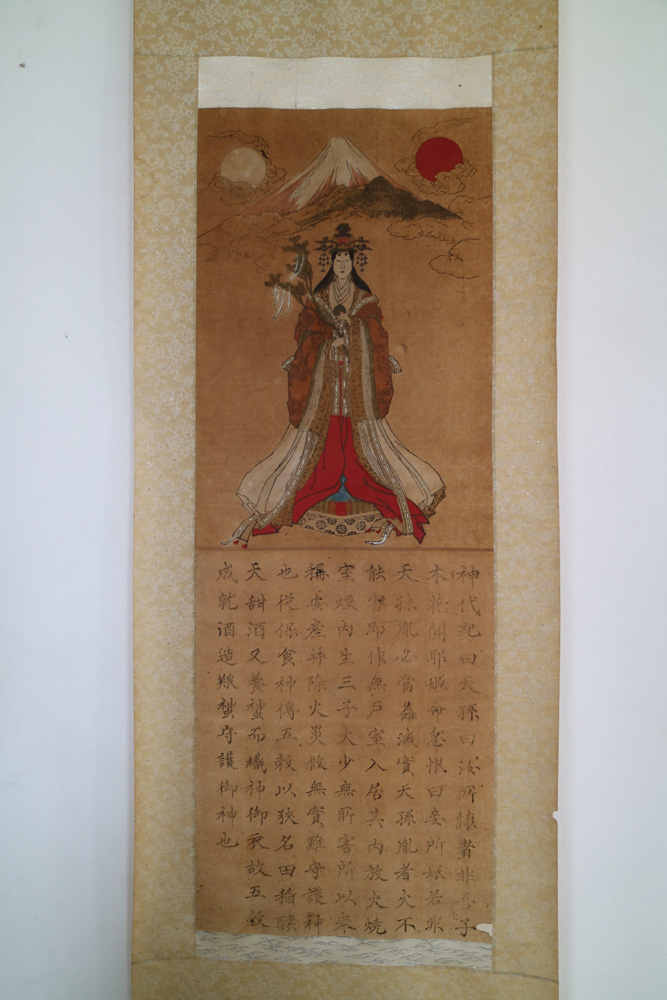 神代紀曰天孫曰汝所懐者非吾子
木花開耶姫命忿恨曰妾所娠若非
天孫胤必當𤓪滅實天孫胤者火不
能害即作無戸室入居其内放火焼
室煙内生三子火少無所害所以奉
稱安産并除火災救無實難守護神
也従保食神傳五穀以狭名田稲醸
天甜酒又養蚕而織神御衣故五穀
成就酒造蚕守護御神也